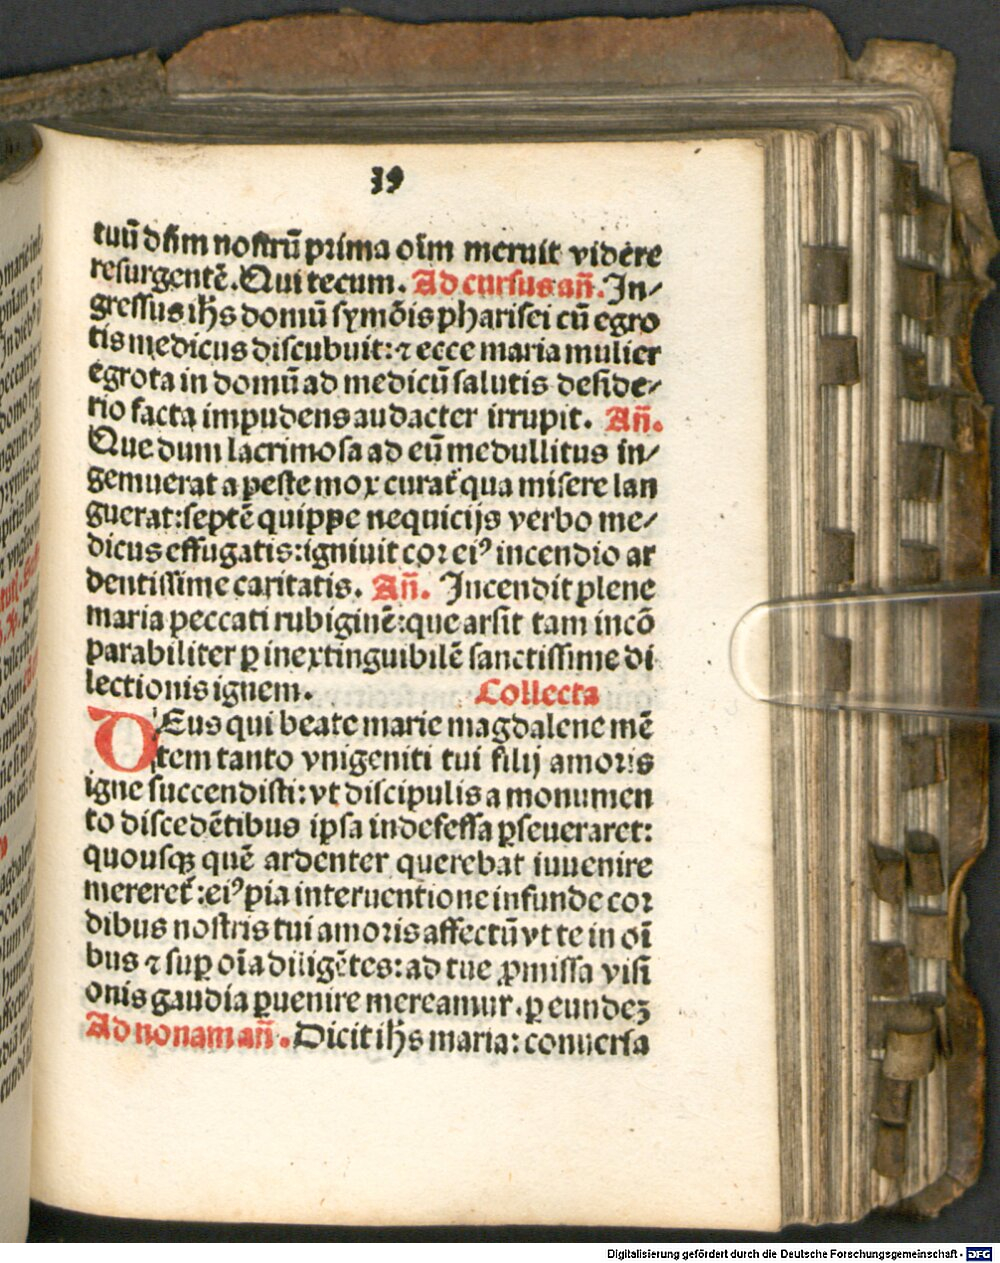 39
tuū dn̄m nostrū prima oīm meruit videre
resurgentē. Qui tecum. Ad cursus an̄. In⸗
gressus ihs domū symōis pharisei cū egro
tis medicus discubuit: ⁊ ecce maria mulier
egrota in domū ad medicū salutis deside⸗
rio facta impudens audacter irrupit. An̄.
Que dum lacrimosa ad eū medullitus in⸗
gemuerat a peste mox curat̄ qua misere lan
guerat: septē quippe nequicijs verbo me⸗
dicus effugatis: igniuit cor eiꝰ incendio ar
dentissime caritatis. An̄. Incendit plene
maria peccati rubiginē: que arsit tam incō
parabiliter ꝑ inextinguibilē sanctissime di
lectionis ignem. Collecta
DEus qui beate marie magdalene mē
tem tanto vnigeniti tui filij amoris
igne succendisti: vt discipulis a monumen
to discedētibus ipsa indefessa ꝑseueraret:
quousqꝫ quē ardenter querebat inuenire
mereret̄: eiꝰ pia interuentione infunde cor
dibus nostris tui amoris affectū vt te in oī
bus ⁊ suꝑ oīa diligētes: ad tue ꝓmissa visi
onis gaudia ꝑuenire mereamur. ꝑ eundeꝫ
Ad nonam an̄. Dicit ihs maria: conuersa
Digitalisierung gefördert durch die Deutsche Forschungsgemeinschaft - DFG